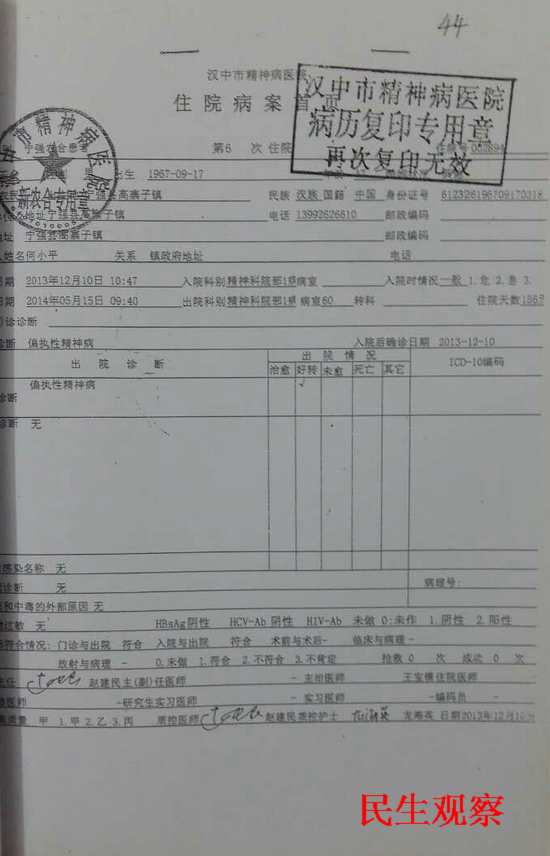 44
汉中市精神病医院
住院病案首页
汉中市精神病医院
病历复印专用章
再次复印无效
精神病医院
新农合专用章
宁强农合患者 第6 次住院
男 出生 1967-09-17
高寨子镇 民族 汉族 国籍 中国 身份证号
地址宁强县高寨子镇 电话 13992626610 邮政编码
宁强县高寨子镇 邮政编码
姓名何小平 关系 镇政府地址 电话
日期 2013年12月10日 10:47 入院科别精神科院部1病室 入院时情况一般 1.危 2.急 3.
日期 2014年05月15日 09:40 出院科别精神科院部1病 病室60 转科 住院天数
诊诊断
诊断 偏执性精神病 入院后确诊日期 2013-12-10
出 院 诊 断 出 院 情 况 ICD-10编码
治愈 好转 未愈 死亡 其它
偏执性精神病 √
诊断
诊断 无
感染名称 无
诊断 无 病理号:
和中毒的外部原因 无
过敏 无 HBsAg 阴性 HCV-Ab 阴性 HIV-Ab 未做 0:未作 1.阴性 2.阳性
符合情况: 门诊与出院 符合 入院与出院 符合 术前与术后- 临床与病理-
放射与病理 - 0.未做 1.符合 2.不符合 3.不肯定 抢救 0 次 成功 0 次
主任 赵建民主(副)任医师 -主治医师 王宝模住院医师
医师 -研究生实习医师 -实习医师 -编码员 -
质量 甲 1.甲 2.乙 3.丙 质控医师 赵建民质控护士 龙海英 日期2013年12月
民生观察